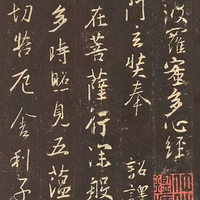 波羅蜜多心經
門玄奘奉 詔譯
在菩薩行深般
多時照見五蘊
切苦厄舍利子